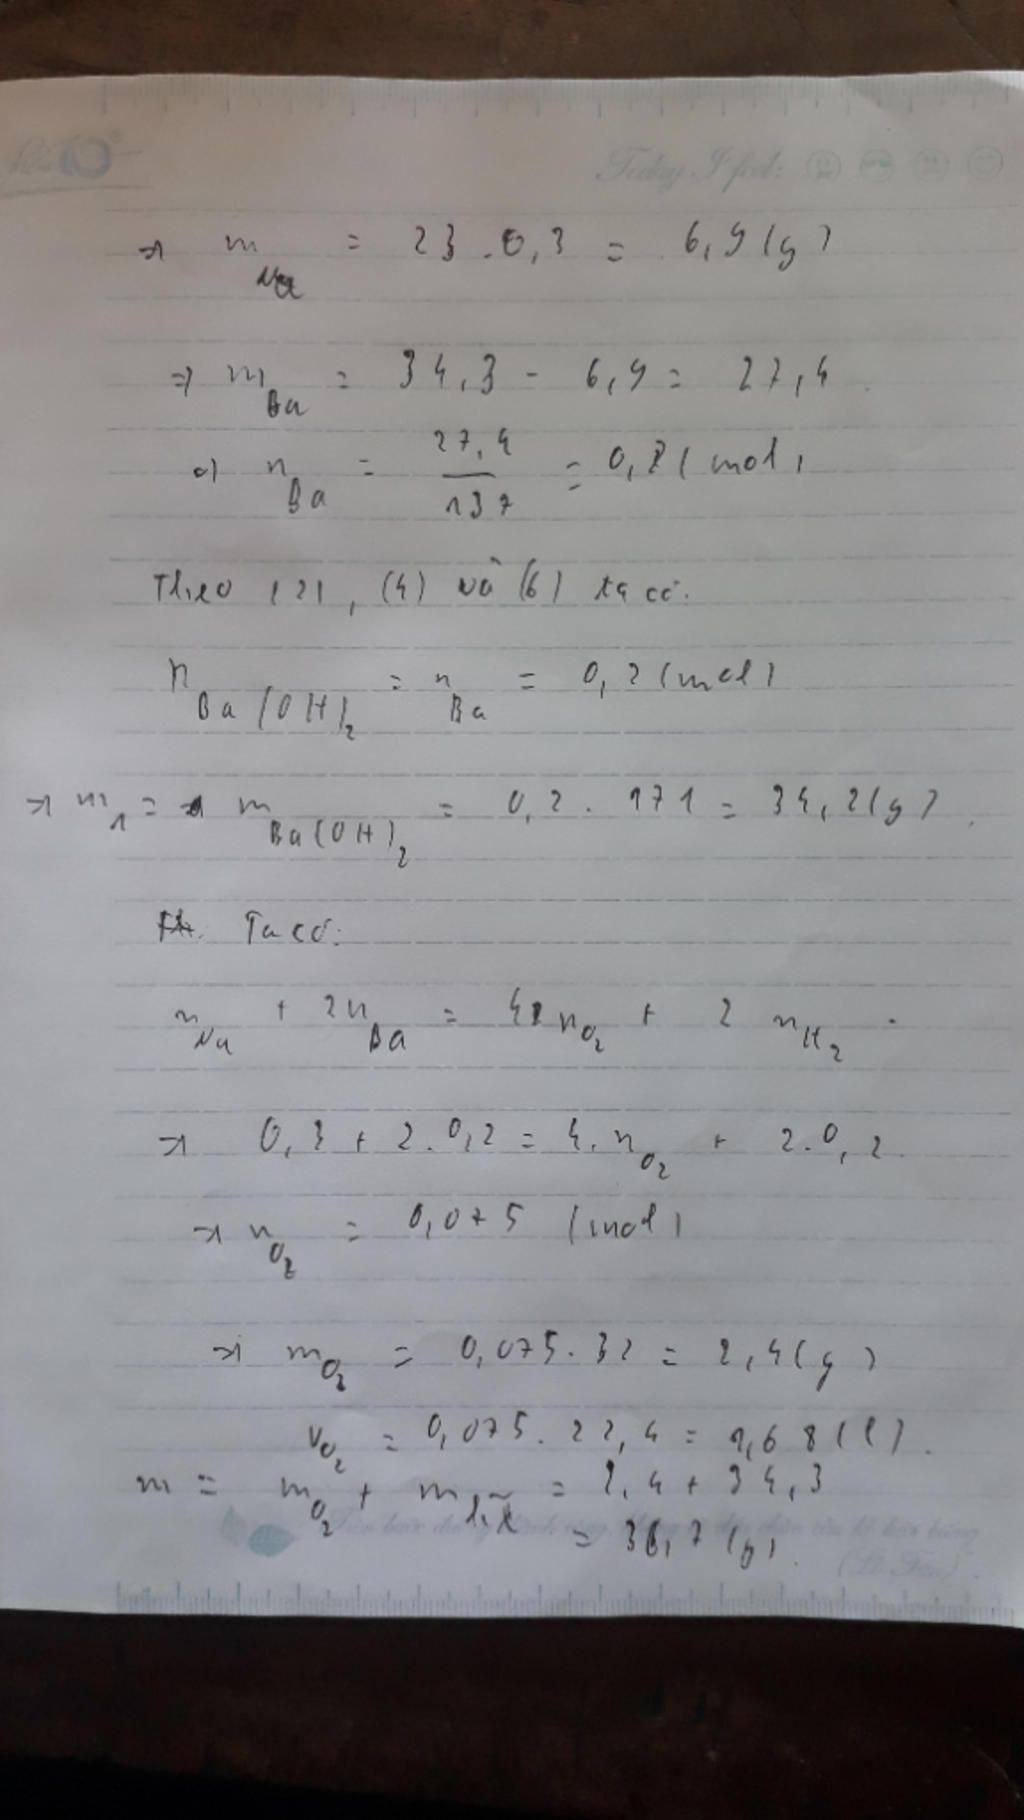 Today I feel:
→ m Na = 23 . 0,3 = 6,9 (g)
=> m Ba = 34,3 - 6,9 = 27,4
=> n Ba = 27,4 / 137 = 0,2 (mol)
Theo (2), (4) và (6) ta có:
n Ba(OH)₂ = n Ba = 0,2 (mol)
→ m₁ = m Ba(OH)₂ = 0,2 . 171 = 34,2 (g)
Ta có:
n Na + 2n Ba = 4 n O₂ + 2 n H₂
→ 0,3 + 2.0,2 = 4. n O₂ + 2.0,2
→ n O₂ = 0,075 (mol)
→ m O₂ = 0,075.32 = 2,4 (g)
V O₂ = 0,075. 22,4 = 1,68 (l).
m = m O₂ + m = 2,4 + 34,3
= 36,7 (g).